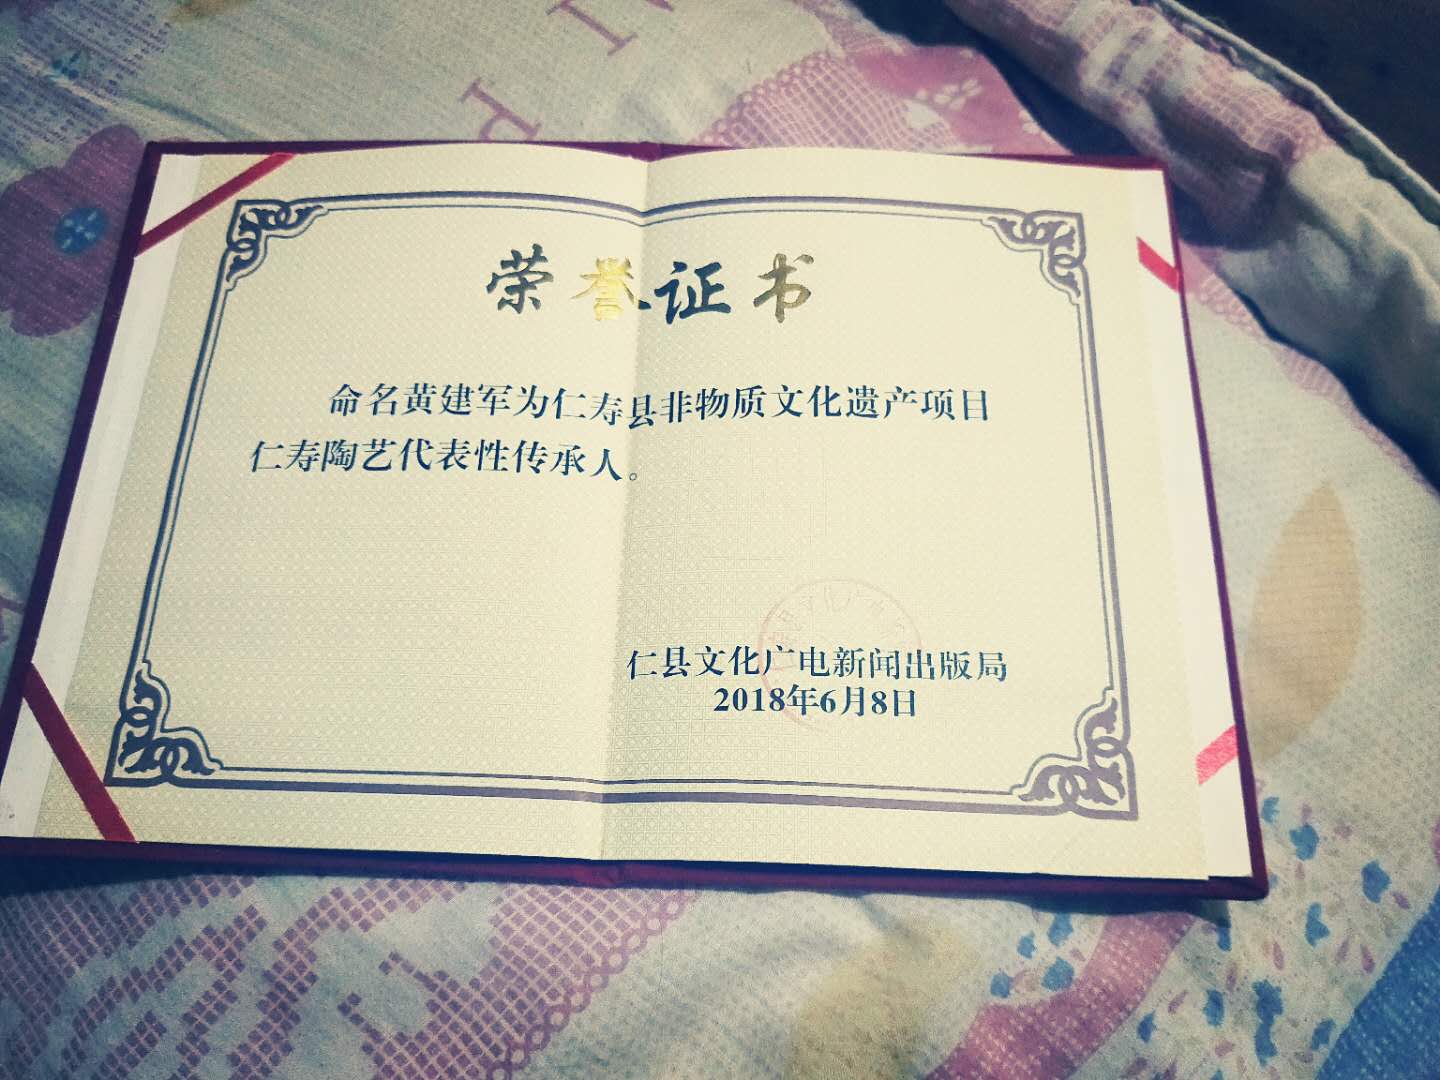 荣誉证书
命名黄建军为仁寿县非物质文化遗产项目
仁寿陶艺代表性传承人。
仁县文化广电新闻出版局
2018年6月8日